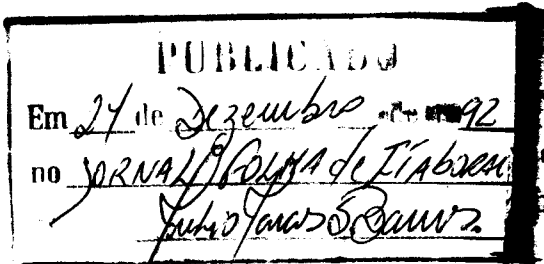 PUBLICADO
Em 24 de Dezembro de 92
no JORNAL FOLHA de ITABORAI